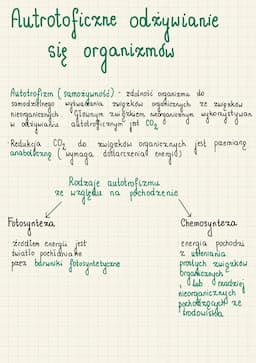 Autrotoficzne odżywianie
się organizmów
Autotrofizm (samożywność) - zdolność organizmu do
samodzielnego wytwarzania związków organicznych ze związków
nieorganicznych. Głównym związkiem nieorganicznym wykorzystywan
w odżywianiu autotroficznym jest CO₂
Redukcja CO₂ do związków organicznych jest przemianą
anaboliczną (wymaga dostarczenia energii)
Rodzaje autotrofizmu
ze względu na pochodzenie
Fotosynteza
źródłem energii jest
światło pochłaniane
przez barwniki fotosyntetyczne
Chemosynteza
energia pochodzi
z utleniania
prostych związków
organicznych
lub rzadziej
nieorganicznych
pochodzących ze
środowiska